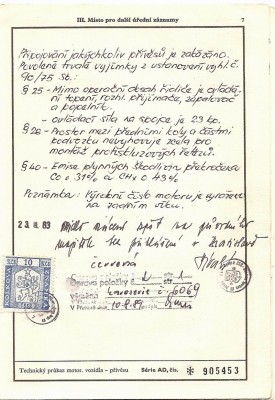 III. Místo pro další úřední záznamy
7
Připojování jakýchkoliv přívěsů je zakázáno.
Povolena trvalá vyjímka z ustanovení vyhl. č.
90/75 Sb.:
§ 25 - Mimo operační dosah řidiče je ovládá-
ní topení, rozhl. přijímače, zapalovač
a popelník.
- ovládací síla na spojce je 23 kp.
§ 26 - Prostor mezi předními koly a částmi
podvozku nevyhovuje zcela pro
montáž protiskluzových řetězů.
§ 40 - Emise plynných škodlivin překročena
CO o 31% a CHx o 43%
Poznámka: Výrobní číslo motoru je vyraženo
na zadním víku.
23. II. 83
zpět na původního
majitele bez přihlášení v
červená
Oprava položky č. 1
výměna karoserie č. 6069
10.8.84
KOLKOVÁ
10
KČS
Technický průkaz motor. vozidla – přívěsu
Série AD, čís.
* 905453